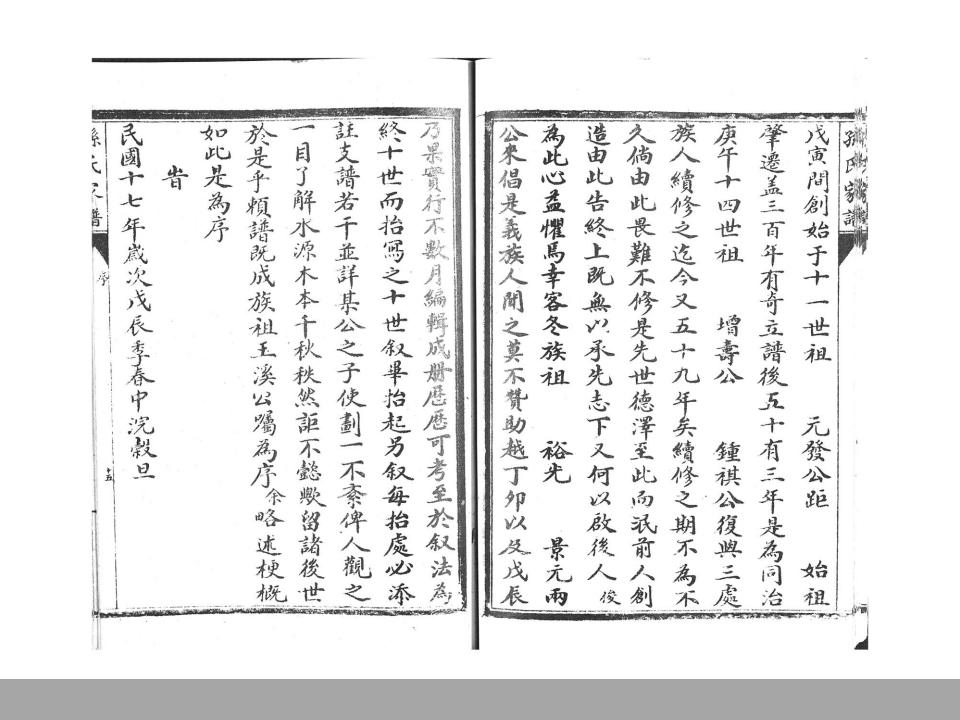 孫氏家譜
戊寅間創始于十一世祖 元發公距 始祖
肇遷盖三百年有奇立譜後五十有三年是為同治
庚午十四世祖 增壽公 鍾祺公復與三處
族人續修之迄今又五十九年矣續修之期不為不
久倘由此畏難不修是先世德澤至此而泯前人創
造由此告終上既無以承先志下又何以啟後人俊
為此心益懼焉幸客冬族祖 裕光 景元兩
公來倡是義族人聞之莫不贊助越丁卯以及戊辰
乃果實行不數月編輯成册歷歷可考至於叙法為
終十世而抬寫之十世叙畢抬起另叙每抬處必添
註支譜若干並詳某公之子使劃一不紊俾人觀之
一目了解水源木本千秋秩然詎不懿歟留諸後世
於是乎頼譜既成族祖玉溪公囑為序余略述梗概
如此是為序
旹
民國十七年歲次戊辰季春中浣穀旦
孫氏家譜 序 十五